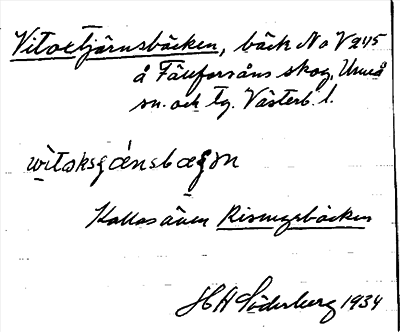 Vitoxtjärnsbäcken, bäck No V 245
å Fällforsåns skog, Umeå
sn. och tg. Västerb. l.
Kallas även Rismyrbäcken
H A Söderberg 1934